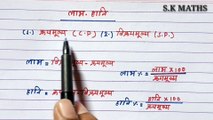 S.K MATHS
लाभ-हानि
(1.) क्रयमूल्य (C.P) (2.) विक्रयमूल्य (S.P)
लाभ = विक्रयमूल्य - क्रयमूल्य लाभ % = लाभ × 100 / क्रयमूल्य
हानि = क्रयमूल्य - विक्रयमूल्य हानि % = हानि × 100 / क्रयमूल्य